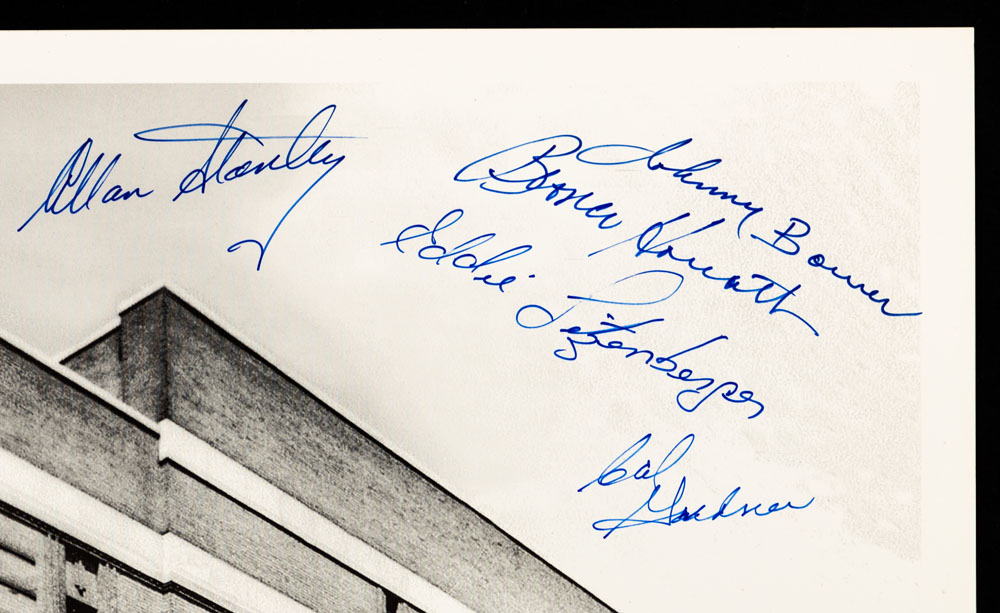 Allan Stanley
Johnny Bower
Bronco Horvath
Eddie Litzenberger
Cal
Gardner